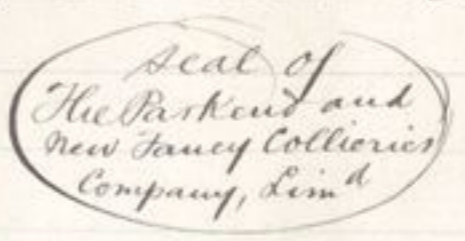 Seal of
The Parkend and
New Fancy Collieries
Company, Limd